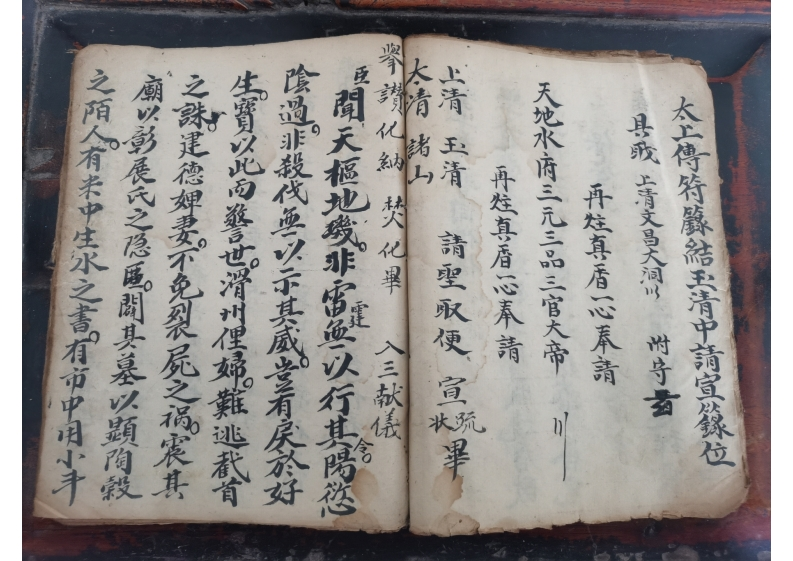 太上傳符籙結玉清中請宣籙位
具職 上清文昌大洞川 附寺
再炷真香一心奉請
天地水府三元三品三官大帝 川
再炷真香一心奉請
上清 玉清 請聖取便 宣疏狀畢
太清 諸山
舉讚化納 焚化畢 入三献儀
臣聞天樞地機非雷霆無以行其陽愆
陰過非殺伐無以示其威豈有戾於好
生寔以此而警世滑州俚婦難逃截首
之誅建德婢妻不免裂屍之禍震其
廟以彰展氏之隐匿闢其墓以顯陶穀
之陌人有米中生水之書有市中用小斗